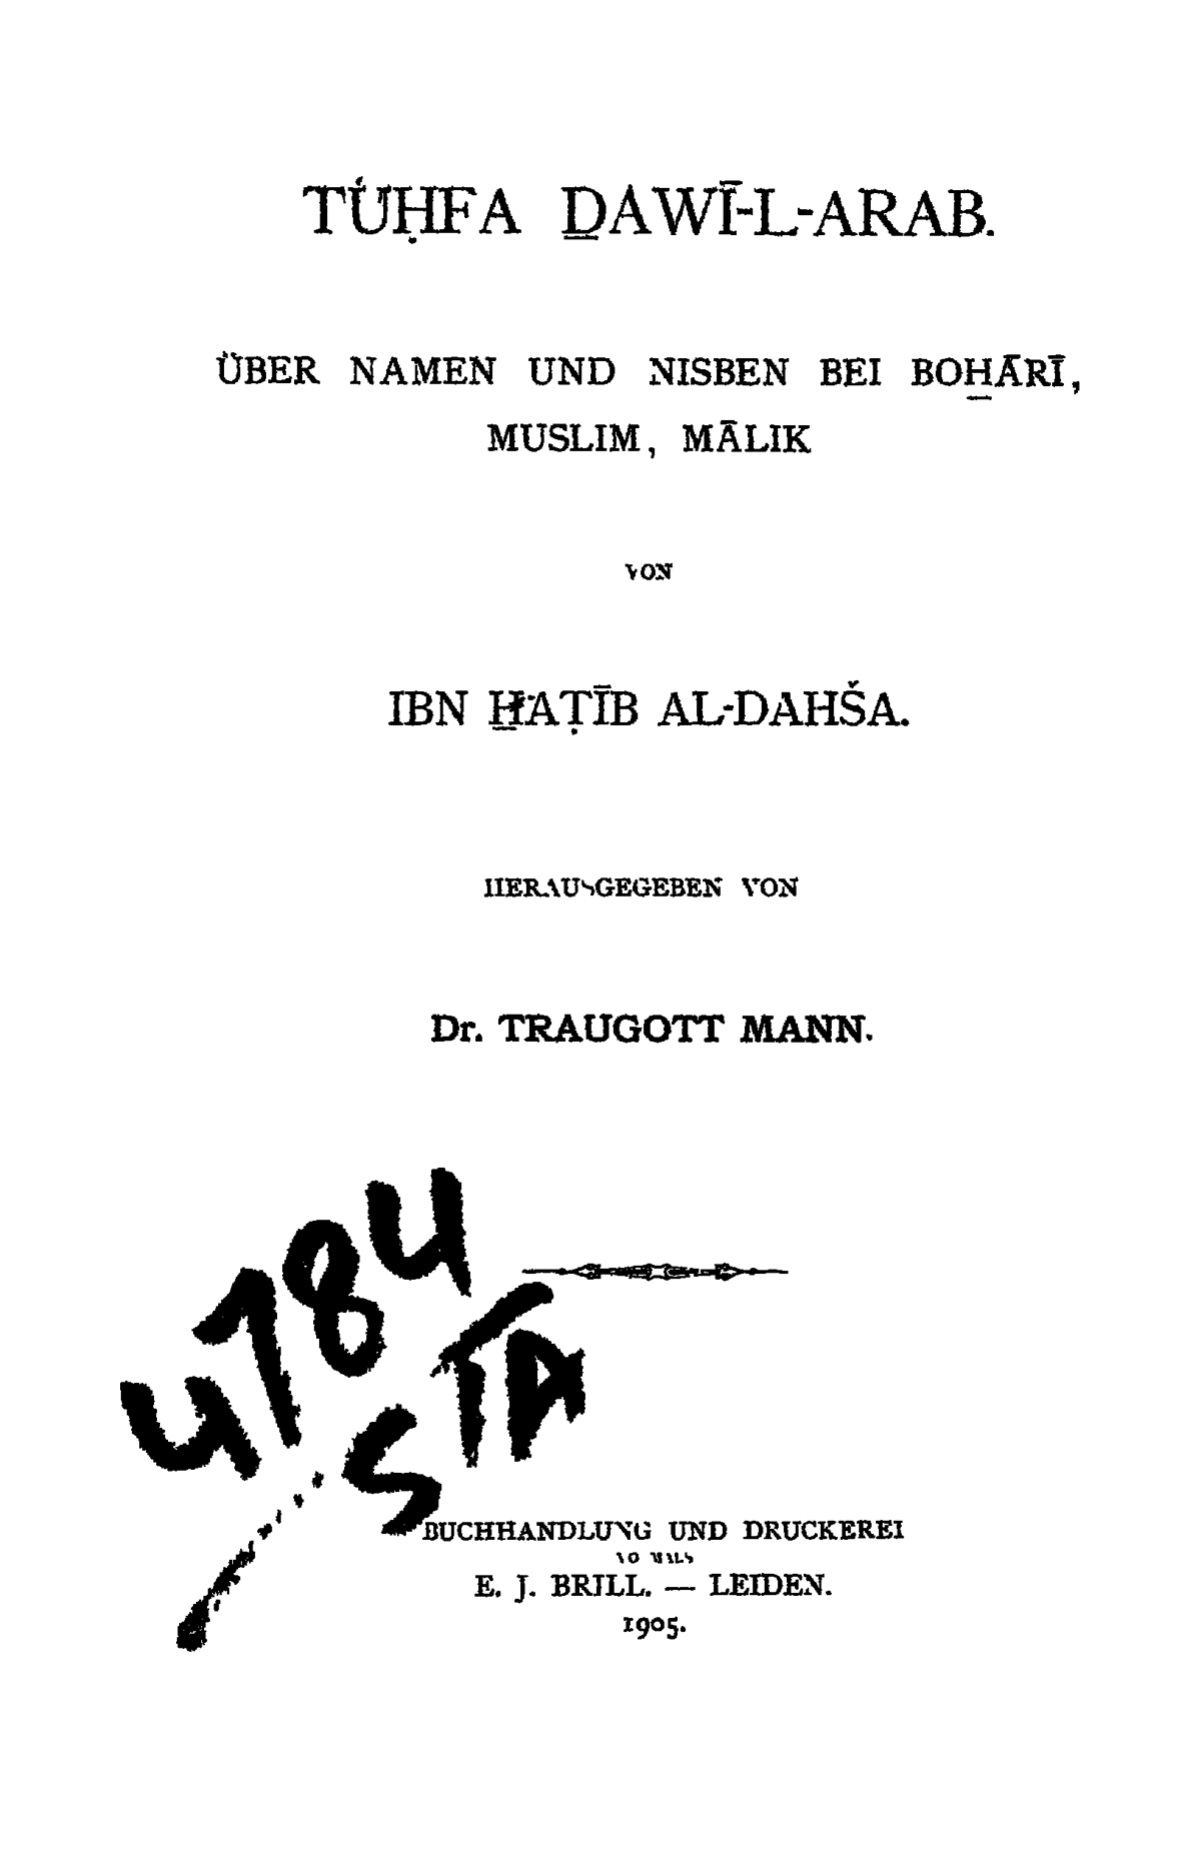 TUḤFA ḎAWĪ-L-ARAB.
ÜBER NAMEN UND NISBEN BEI BOH̱ĀRĪ,
MUSLIM, MĀLIK
VON
IBN H̱AṬĪB AL-DAHŠA.
HERAUSGEGEBEN VON
Dr. TRAUGOTT MANN.
4784
STA
BUCHHANDLUNG UND DRUCKEREI
E. J. BRILL. — LEIDEN.
1905.